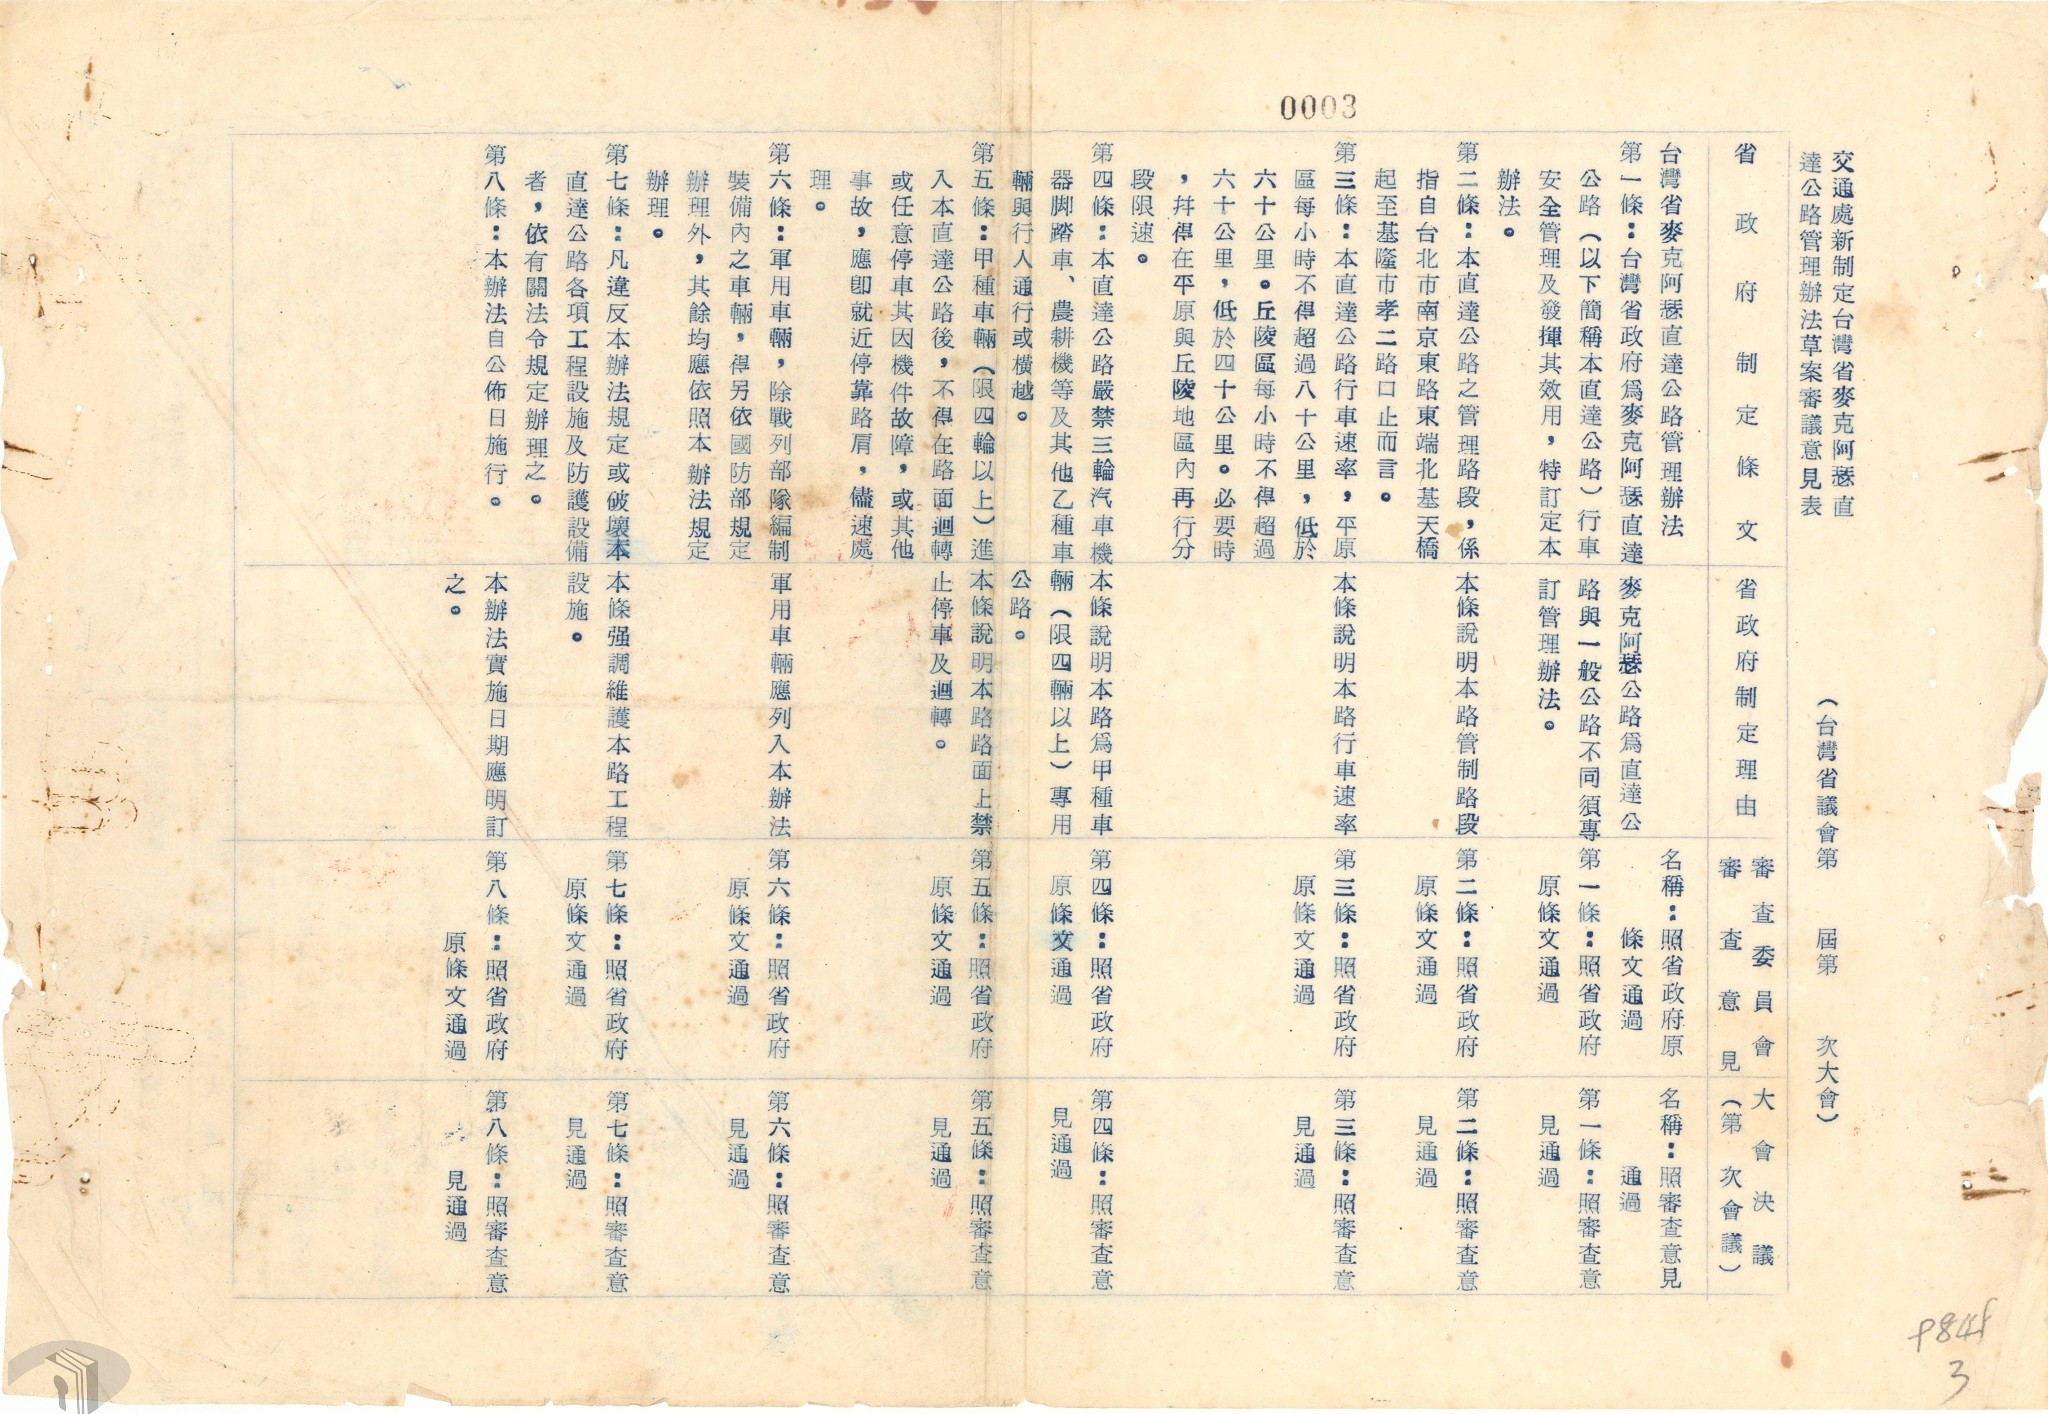 0003
交通處新制定台灣省麥克阿瑟直
達公路管理辦法草案審議意見表
（台灣省議會第　屆第　次大會）
省政府制定條文
台灣省麥克阿瑟直達公路管理辦法
第一條：台灣省政府爲麥克阿瑟直達
公路（以下簡稱本直達公路）行車
安全管理及發揮其效用，特訂定本
辦法。
第二條：本直達公路之管理路段，係
指自台北市南京東路東端北基天橋
起至基隆市孝二路口止而言。
第三條：本直達公路行車速率，平原
區每小時不得超過八十公里，低於
六十公里。丘陵區每小時不得超過
六十公里，低於四十公里。必要時
，幷得在平原與丘陵地區內再行分
段限速。
第四條：本直達公路嚴禁三輪汽車機
器脚踏車、農耕機等及其他乙種車
輛與行人通行或橫越。
第五條：甲種車輛（限四輪以上）進
入本直達公路後，不得在路面迴轉
或任意停車其因機件故障，或其他
事故，應卽就近停靠路肩，儘速處
理。
第六條：軍用車輛，除戰列部隊編制
裝備內之車輛，得另依國防部規定
辦理外，其餘均應依照本辦法規定
辦理。
第七條：凡違反本辦法規定或破壞本
直達公路各項工程設施及防護設備
者，依有關法令規定辦理之。
第八條：本辦法自公佈日施行。
省政府制定理由
麥克阿瑟公路爲直達公
路與一般公路不同須專
訂管理辦法。
本條說明本路管制路段
本條說明本路行車速率
本條說明本路爲甲種車
輛（限四輛以上）專用
公路。
本條說明本路路面上禁
止停車及迴轉。
軍用車輛應列入本辦法
本條强調維護本路工程
設施。
本辦法實施日期應明訂
之。
審查委員會
審查意見
名稱：照省政府原
條文通過
第一條：照省政府
原條文通過
第二條：照省政府
原條文通過
第三條：照省政府
原條文通過
第四條：照省政府
原條文通過
第五條：照省政府
原條文通過
第六條：照省政府
原條文通過
第七條：照省政府
原條文通過
第八條：照省政府
原條文通過
大會決議
（第　次會議）
名稱：照審查意見
通過
第一條：照審查意
見通過
第二條：照審查意
見通過
第三條：照審查意
見通過
第四條：照審查意
見通過
第五條：照審查意
見通過
第六條：照審查意
見通過
第七條：照審查意
見通過
第八條：照審查意
見通過
3